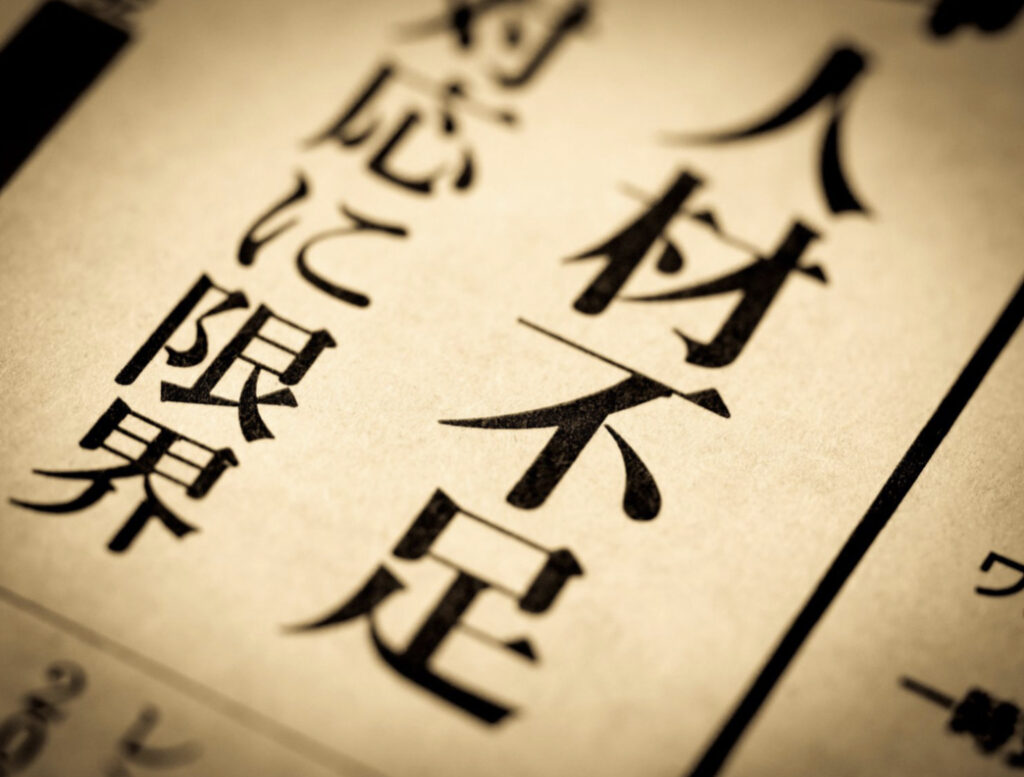 人材不足
対応に限界